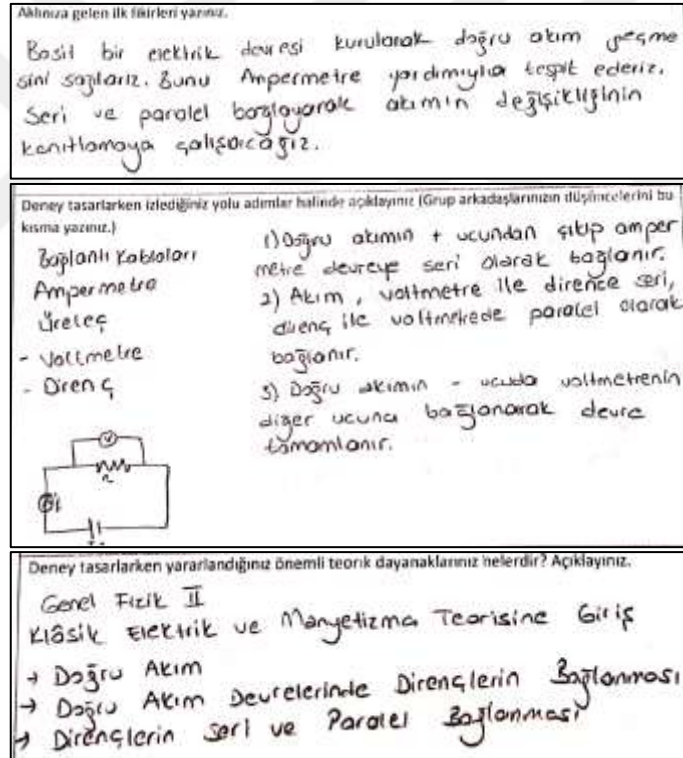 Aklınıza gelen ilk fikirleri yazınız.
Basit bir elektrik devresi kurularak doğru akım geçme
sini sağlarız. Bunu Ampermetre yardımıyla tespit ederiz.
Seri ve paralel bağlayarak akımın değişikliğinin
kanıtlamaya çalışacağız.
Deney tasarlarken izlediğiniz yolu adımlar halinde açıklayınız (Grup arkadaşlarınızın düşüncelerini bu
kısma yazınız.)
Bağlantı kabloları
Ampermetre
Üreteç
- Voltmetre
- Direnç
1) Doğru akımın + ucundan çıkıp amper
metre devreye seri olarak bağlanır.
2) Akım, voltmetre ile dirence seri,
direnç ile voltmetrede paralel olarak
bağlanır.
3) Doğru akımın - ucuda voltmetrenin
diğer ucuna bağlanarak devre
tamamlanır.
V
Deney tasarlarken yararlandığınız önemli teorik dayanaklarınız nelerdir? Açıklayınız.
Genel Fizik II
Klâsik Elektrik ve Manyetizma Teorisine Giriş
→ Doğru Akım
→ Doğru Akım Devrelerinde Dirençlerin Bağlanması
→ Dirençlerin Seri ve Paralel Bağlanması